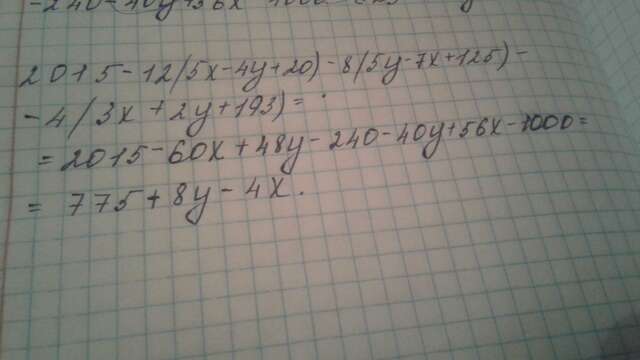 -240-40y+56x-1000
2015-12(5x-4y+20)-8(5y-7x+125)-
-4(3x+2y+193)=
=2015-60x+48y-240-40y+56x-1000=
=775+8y-4x.